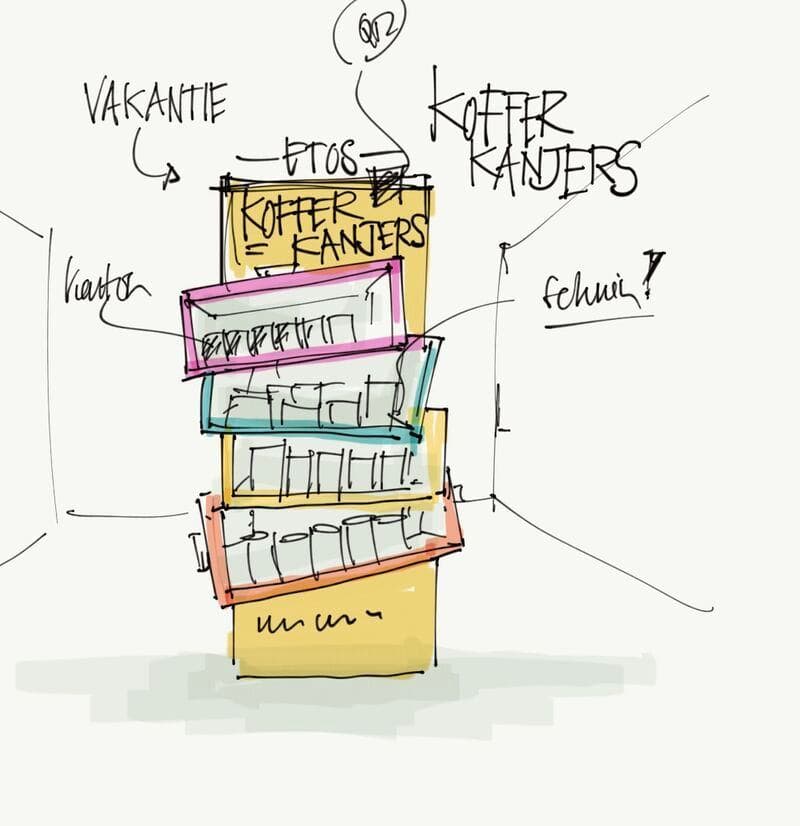 VAKANTIE
KOFFER
KANJERS
—ETOS—
KOFFER
KANJERS
karton
schuin!